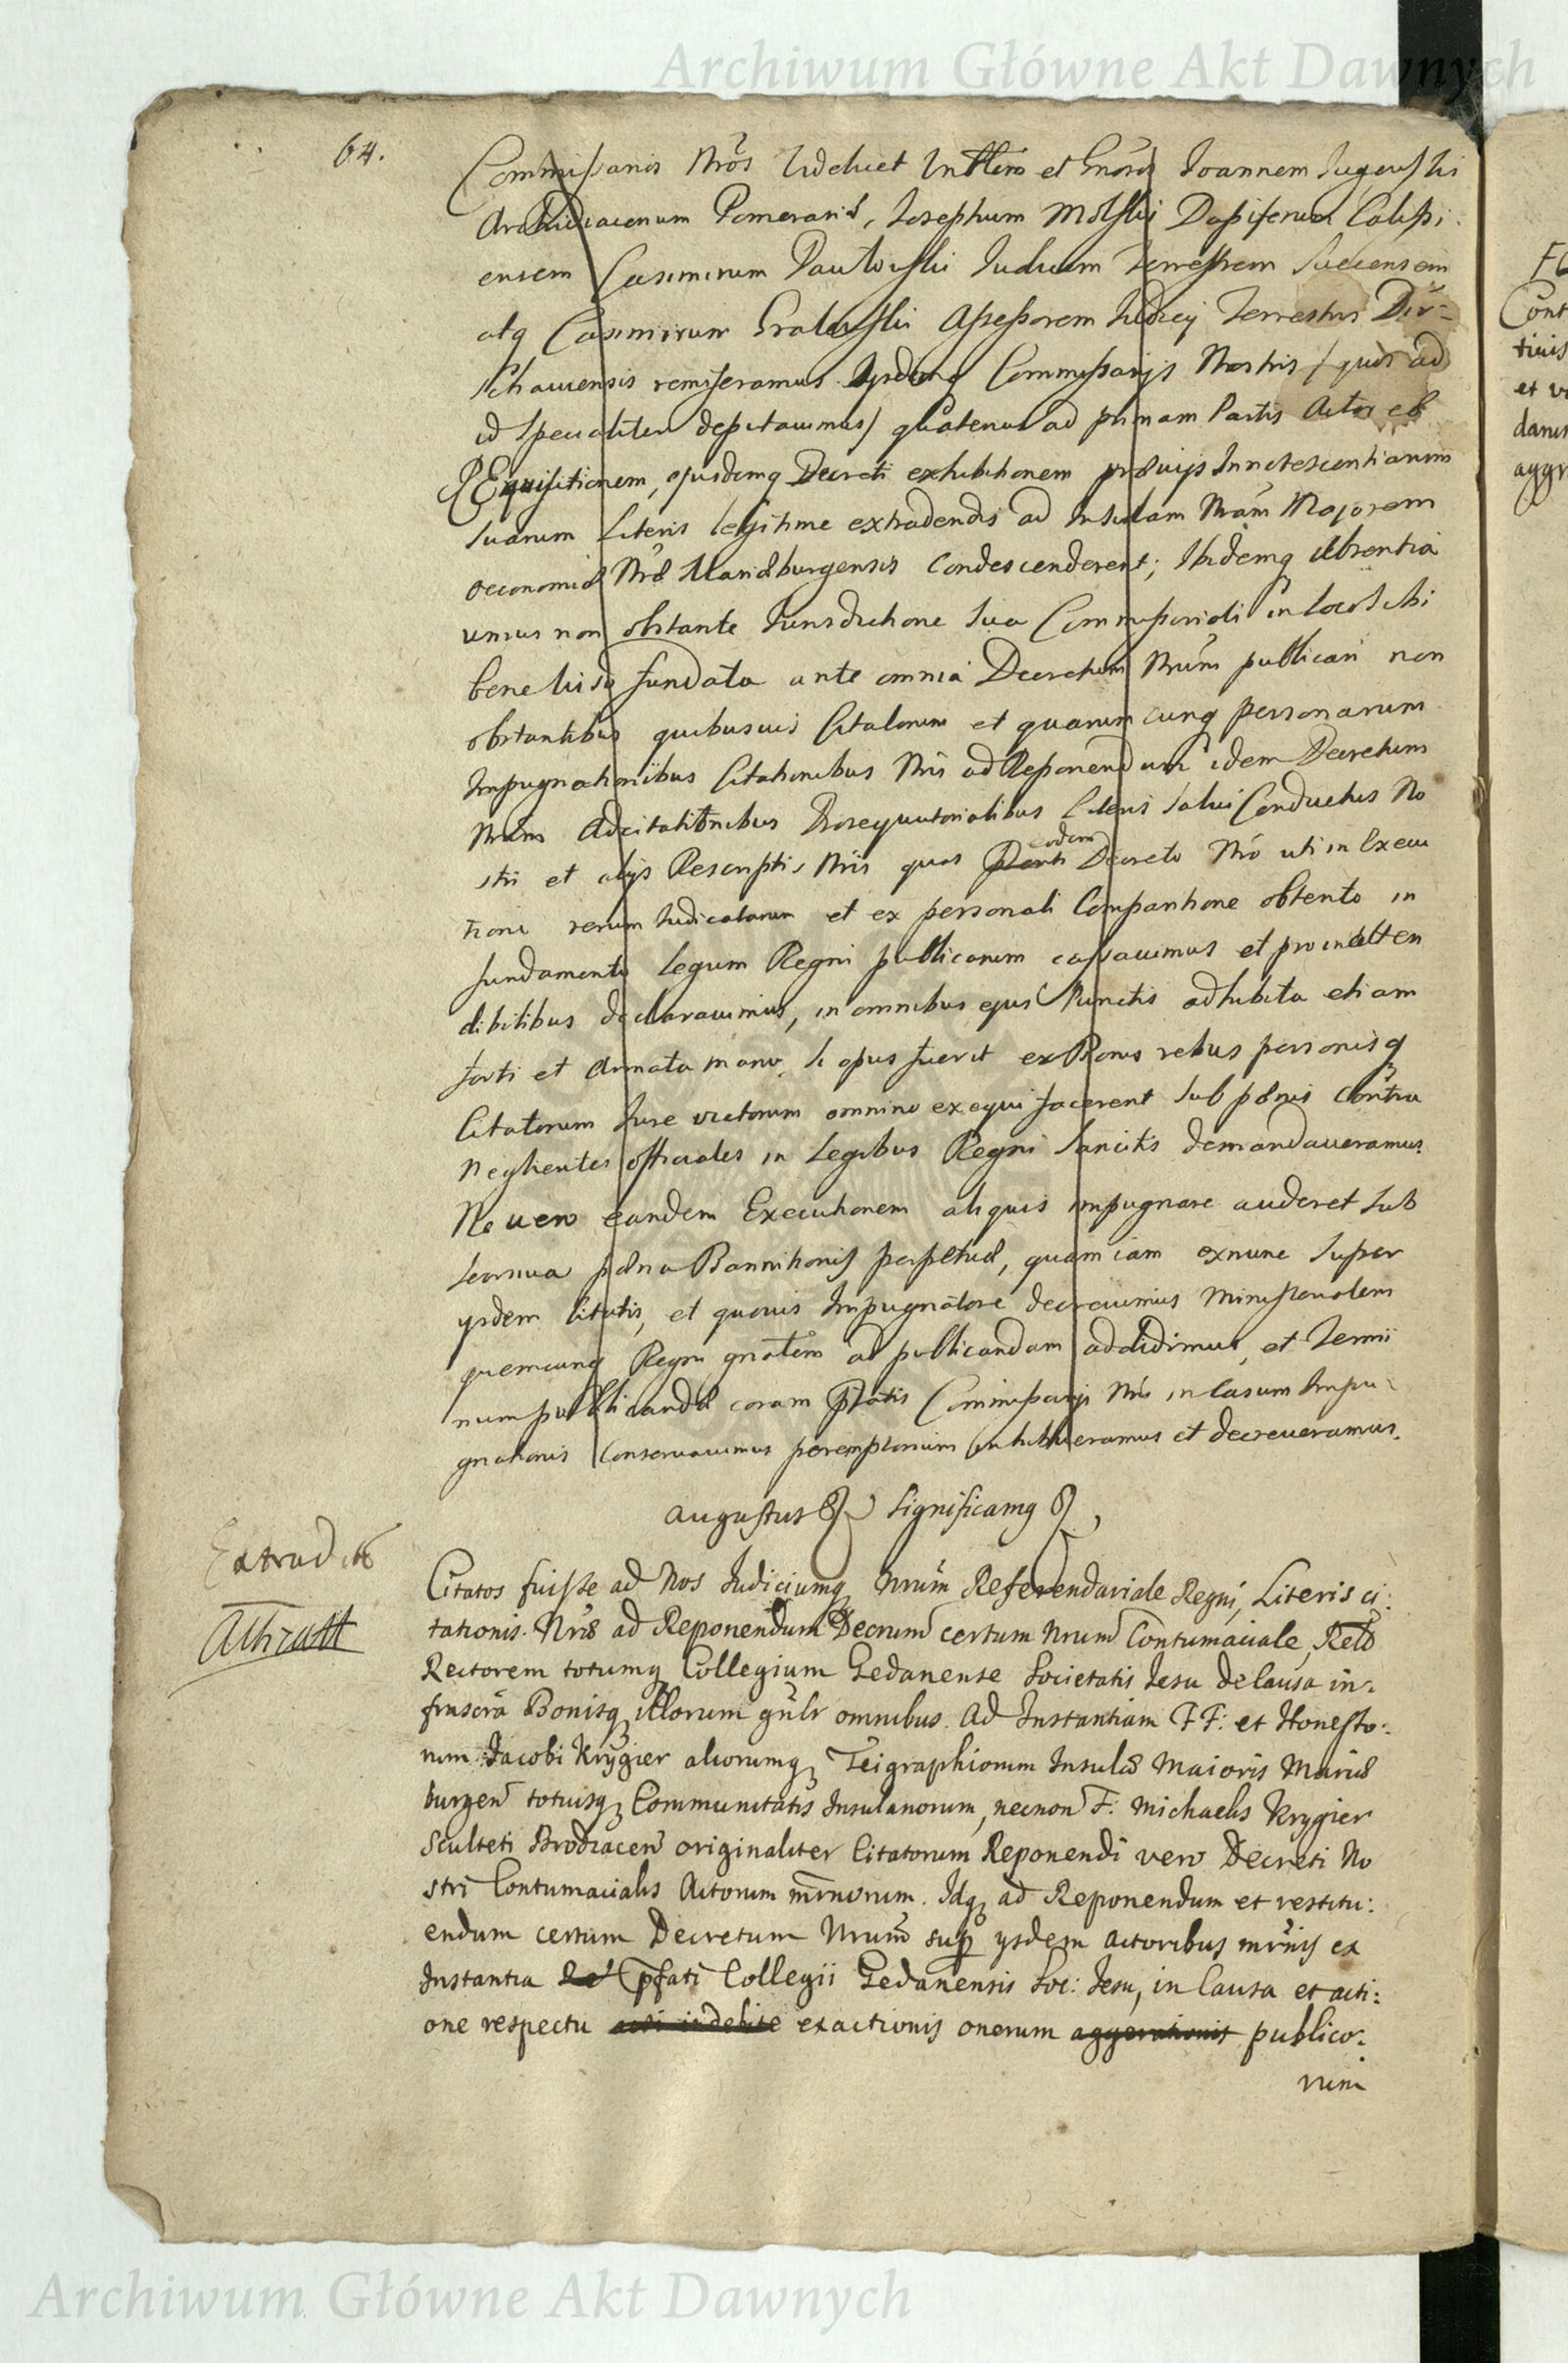 Archiwum Główne Akt Dawnych
64.
Commissarios Nrõs videlicet et Joannem
Archidiaconum Pomeraniæ, Josephum Dapiferum
ensem Casimirum Judicem Terrestrem Suecensem
atq Casimirum Assessorem Judicy Terrestris Dir=
schaviensis remiseramus. Ijsdemq Commissarijs Nostris / quos ad
id specialiter deputavimus / quatenus ad primam Partis Actoreæ
REquisitionem, ejusdemq Decreti exhibitionem prævijs Innotescentiarum
suarum Literis legitime extradendis ad Insulam Nrãm Majorem
oeconomiæ Nræ Mariæburgensis condescenderent; Ibidemq absentia
unius non obstante Jurisdictione sua Commissoriali in loco
bene viso fundata ante omnia Decretum Nrũm publicari non
obstantibus quibusvis Citatorum et quarumcunq personarum
Impugnationibus Citationibus Nris ad Reponendum idem Decretum
Nrũm Adcitationibus Prosequutorialibus Literis Salvi Conductus No
stri et alijs Rescriptis Nris quas eodem Decreto Nrõ uti in Execu
tione rerum Judicatarum et ex personali Comparitione obtento in
fundamento Legum Regni publicarum cassavimus et pro inatten
dibilibus declaravimus, in omnibus ejus Punctis adhibita etiam
forti et Armata manu, si opus fuerit ex Bonis rebus personisq
Citatorum Jure victorum omnino exequi facerent sub pænis contra
negligentes officiales in Legibus Regni sancitis demandaveramus.
Ne vero eandem Executionem aliquis impugnare auderet sub
pæna Bannitionis perpetuæ, quam iam exnunc super
ysdem Citatis, et quovis Impugnatore decrevimus Ministerialem
quemcunq Regni gnãlem ad publicandam addidimus, et Termi
num publicandæ coram Commissarijs Nris in Casum Impu-
gnationis Conservavimus peremptorium decreveramus.
Augustus &c Significamq &c,
Extradit
Citatos fuisse ad Nos Judiciumq Nrum Referendariale Regni, Literis ci:
tationis Nræ ad Reponendum Decrum certum Nrum Contumaciale, Reld
Rectorem totumq Collegium Gedanense Societatis Jesu de Causa in:
frascrã Bonisq illorum gnlr omnibus. Ad Instantiam FF: et Honesto:
rum Jacobi Krygier aliorumq Teigraphiorum Insulæ Maioris Mariæ
burgen totiusq Communitatis Insulanorum, necnon F: Michaelis Krygier
Sculteti Brodracen originaliter Citatorum Reponendi vero Decreti No
stri Contumacialis Actorum mrnorum. Idq ad Reponendum et restitu:
endum certum Decretum Nrum sup ysdem actoribus mrnis ex
Instantia pfati Collegii Gedanensis Soc: Jesu, in Causa et acti:
one respectu exactionis onerum aggerationis publico:
rum
Archiwum Główne Akt Dawnych